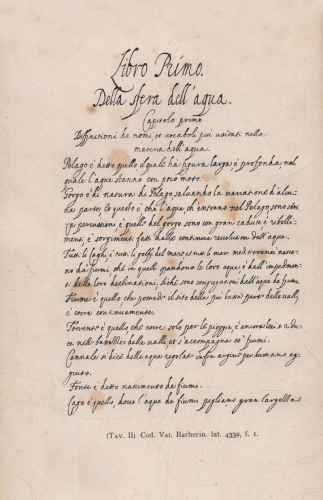 Libro Primo.
Della sfera dell'aqua.
Capitolo primo
Diffinitioni de nomi, et vocaboli più usitati nella
materia dell'aqua.
Pelago è detto quello, il quale ha figura larga, e profonda, nel
quale l'aque stanno con poco moto.
Gorgo è di natura di Pelago, saluando la uariatione d'alcu-
na parte, et questo è che l'aque, ch'entrano nel Pelago, sono senza
percussione, e quelle del gorgo sono con gran cadute e ribolli-
menti, e sorgimenti fatti dalle continue reuolutioni dell'aque.
Tutti li laghi, e tutti li golfi del mare, et tutti li mari mediterranei nasco-
no da fiumi, che in quelli spandono le loro aque, e dall'impedimen-
to della loro declinatione,
Fiume è quello che possiede il sito della più bassa parte delle valli,
e corre continuamente.
Torrente è quello che corre solo per le pioggie,
nelle bassezze delle valli, et s'accompagna co' fiumi.
Cannale si dice delle aque regolate infra argini per humano ag-
giuto.
Fonte è detto nascimento de fiumi.
Lago è quello, doue l'aque de fiumi pigliano gran larghezza
(Tav. II) Cod. Vat. Barberin. lat. 4332, f. 1.